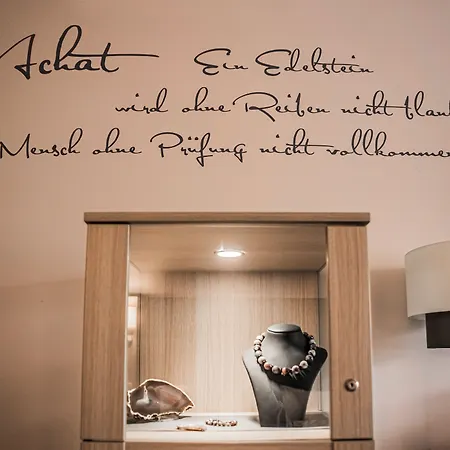 Achat Ein Edelstein
wird ohne Reiben nicht blank
Mensch ohne Prüfung nicht vollkommen